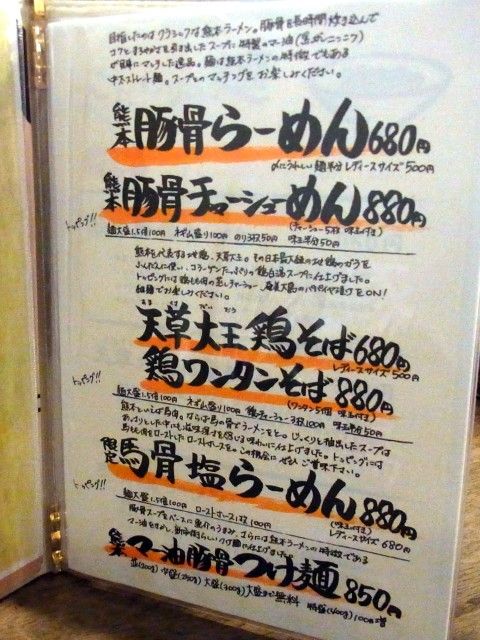 目指したのはクラシックな熊本ラーメン。豚骨を長時間炊き込んで
コクとまろやかさを引き出したスープに特製のマー油(黒がしニンニク)
が見事にマッチした逸品。麺は熊本ラーメンの特徴でもある
中太ストレート麺。スープとのマッチングをお楽しみください。
熊本 豚骨らーめん 680円
〆にうれしい麺半分レディースサイズ 500円
熊本 豚骨チャーシューめん 880円
(チャーシュー5枚 味玉付き)
トッピング!!
麺大盛1.5倍100円 ネギ盛り100円 のり3枚50円 味玉半分50円
熊本を代表する地鶏、天草大王。その日本最大級の地鶏のガラを
ふんだんに使い、コラーゲンたっぷりの鶏白湯スープに仕上げました。
トッピングには鶏もも肉の蒸しチャーシュー、奄美大島のパパイヤ漬けをON!
細麺でお楽しみください。
あま くさ だい おう
天草大王鶏そば 680円
レディースサイズ 500円
鶏ワンタンそば 880円
(ワンタン5個 味玉付き)
トッピング!!
麺大盛1.5倍100円 ネギ盛り100円 鶏チャーシュー3枚100円 味玉半分50円
熊本といえば馬肉。ならば馬の骨でラーメンをと。じっくりと抽出したスープは
あっさりとした中にも滋味深さを感じる味わいに仕上げました。トッピングには
馬もも肉をローストしたローストホースを。この機会にぜひご賞味下さい。
限定 馬骨塩らーめん 880円
(味玉付き)
レディースサイズ 680円
トッピング!!
麺大盛1.5倍100円 ローストホース1枚100円
豚骨スープをベースに魚介のうまみ、さらには熊本ラーメンの特徴である
マー油をきめ、新市街らしいつけ麺に仕上げました。
熊本 マー油豚骨つけ麺 850円
並(200g) 中盛(250g) 大盛(300g) 大盛まで無料 特盛(400g)100円増